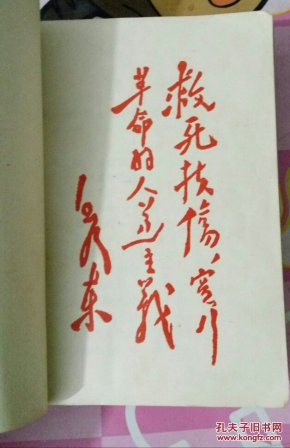 救死扶伤，实行
革命的人道主义
毛泽东
孔夫子旧书网
KONGFZ.COM